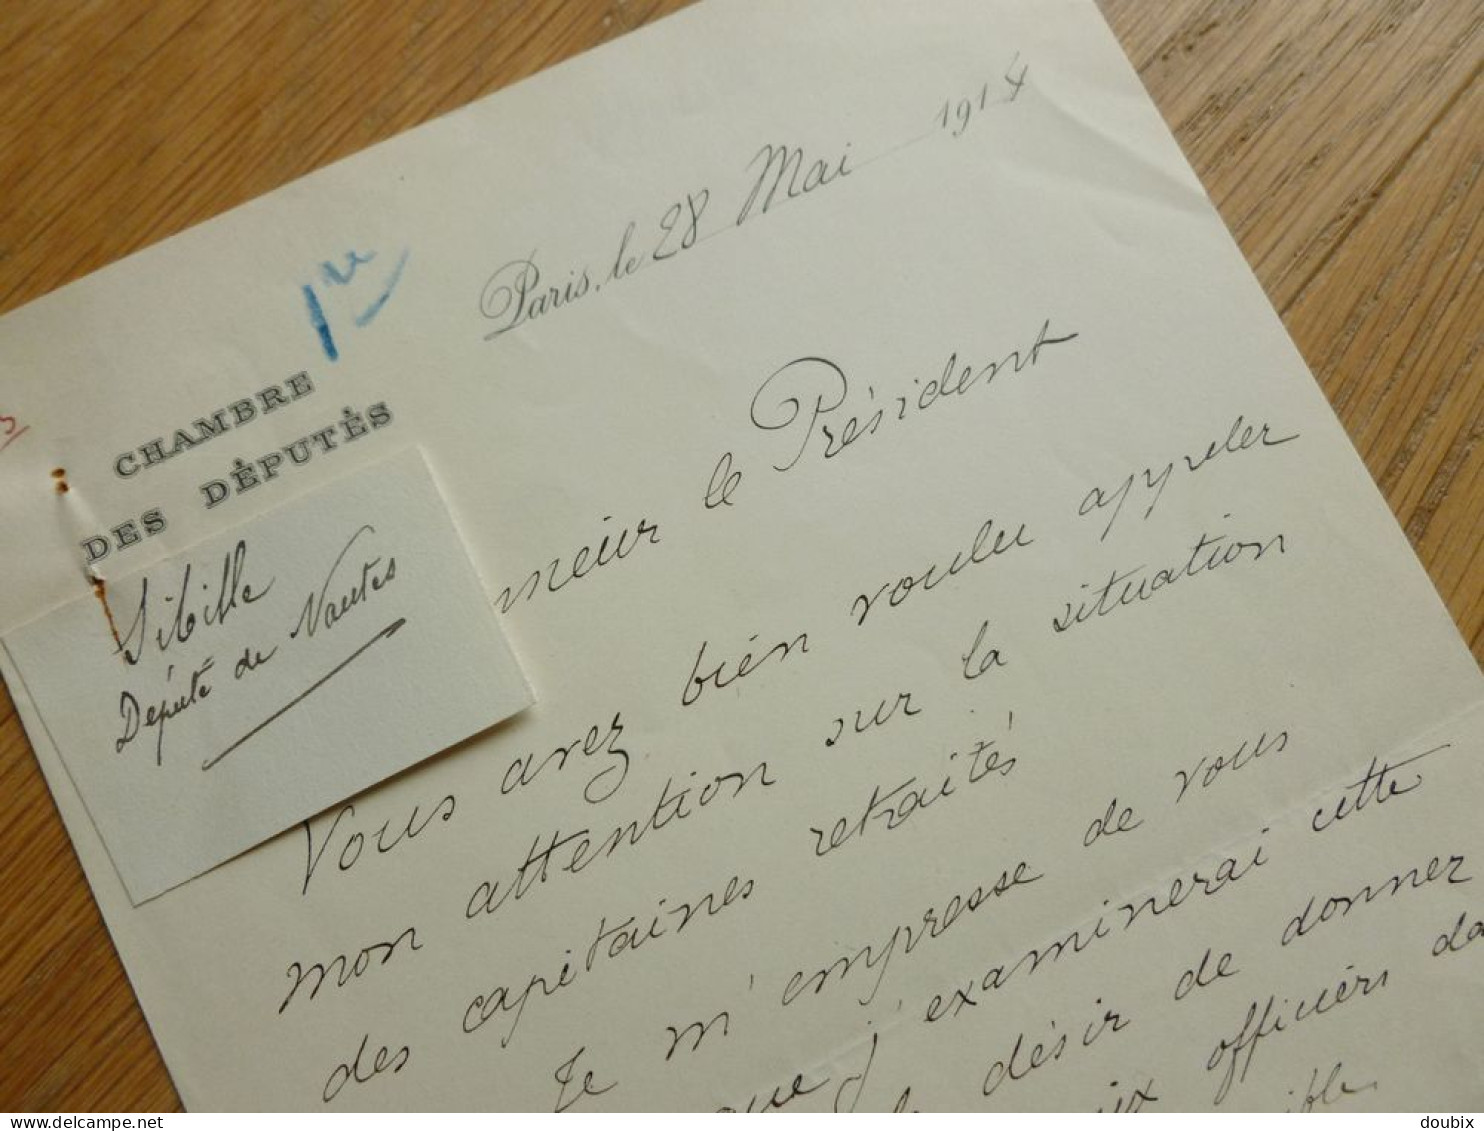 Paris, le 28 Mai 1914
1re
CHAMBRE
DES DÉPUTÈS
Sibille
Député de Nantes
Monsieur le Président
Vous avez bien voulu appeler
mon attention sur la situation
des capitaines retraités
Je m'empresse de vous
que j'examinerai cette
désir de donner
officiers
delcampe.net
doubix